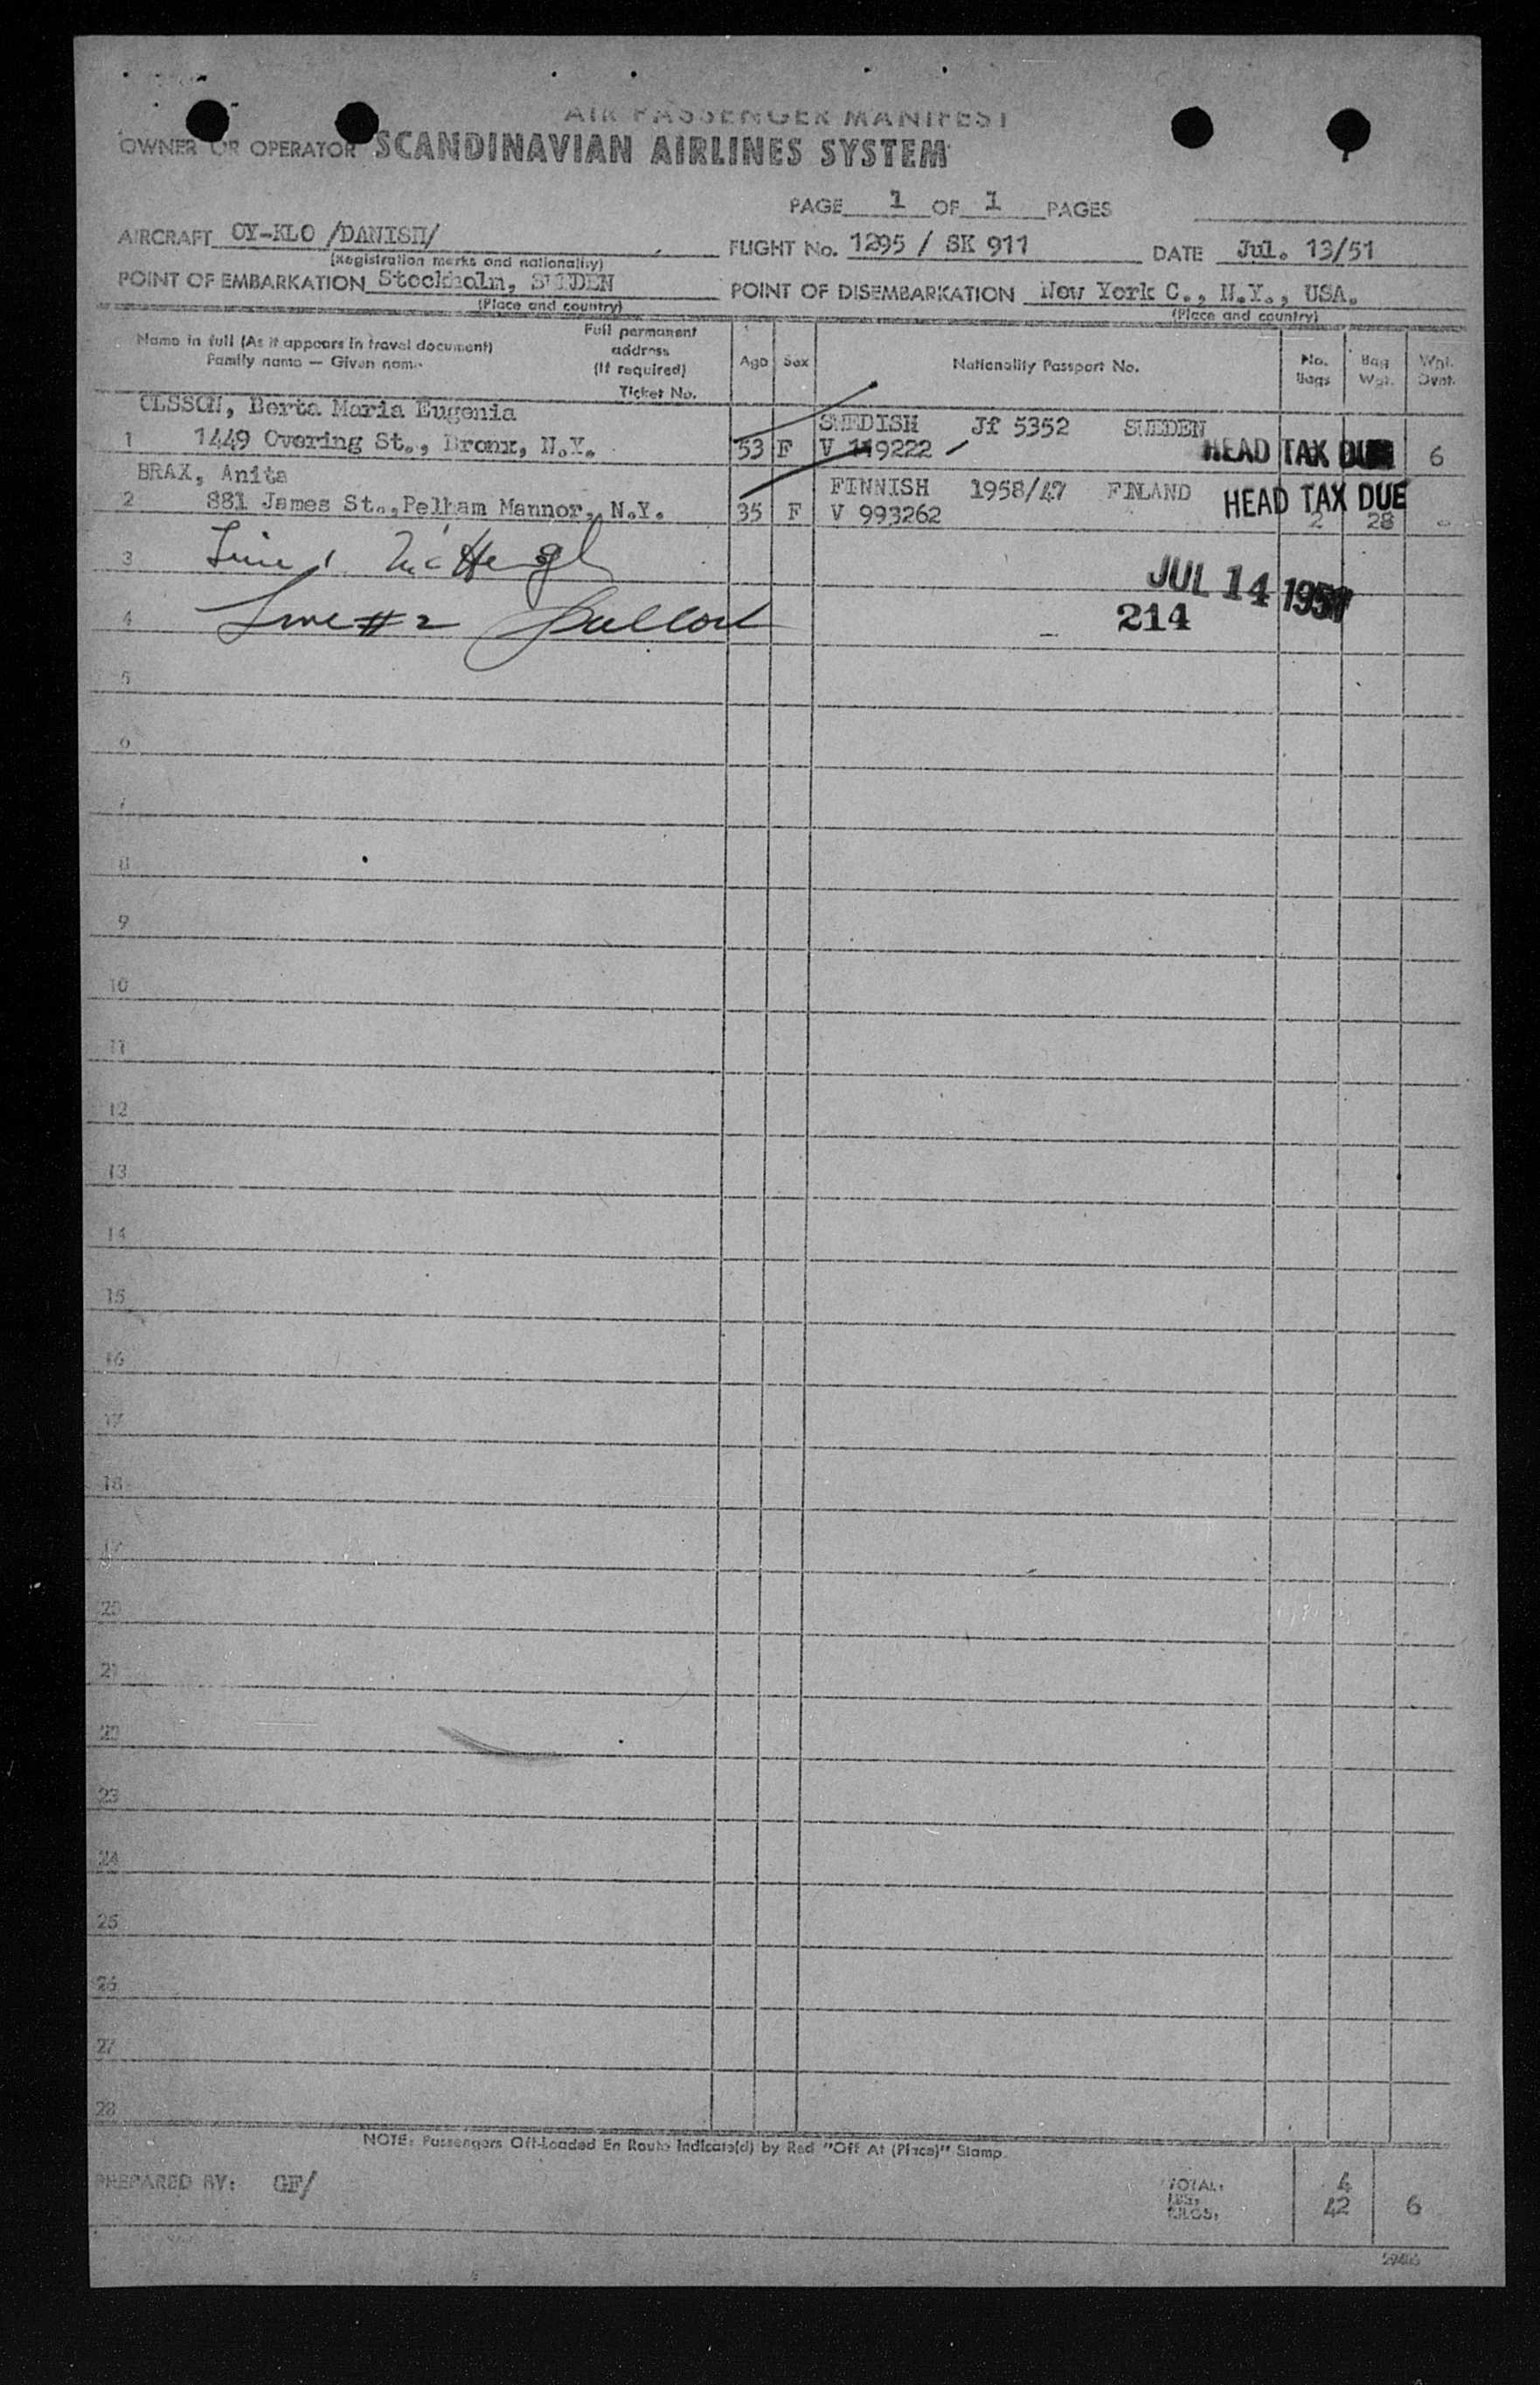 AIR PASSENGER MANIFEST
OWNER OR OPERATOR SCANDINAVIAN AIRLINES SYSTEM
PAGE 1 OF 1 PAGES
AIRCRAFT OY-KLO /DANISH/ FLIGHT No. 1295 / SK 911 DATE Jul. 13/51
(Registration marks and nationality)
POINT OF EMBARKATION Stockholm, SWEDEN POINT OF DISEMBARKATION New York C., N.Y., USA.
(Place and country) (Place and country)
Name in full (As it appears in travel document) Family name — Given name Full permanent address (If required) Ticket No. Age Sex Nationality Passport No. No. Bags Bag Wgt. Wgt. Ovnt.
OLSSON, Berta Maria Eugenia SWEDISH Jf 5352 SWEDEN
1 1449 Overing St., Bronx, N.Y. 53 F V 119222 HEAD TAX DUE 6
BRAX, Anita FINNISH 1958/47 FINLAND HEAD TAX DUE
2 881 James St.,Pelham Mannor, N.Y. 35 F V 993262 2 28 -
3 Line 1 McHugh JUL 14 1951
4 Line #2 214
5
6
7
8
9
10
11
12
13
14
15
16
17
18
19
20
21
22
23
24
25
26
27
28
NOTE: Passengers Off-Loaded En Route Indicate(d) by Red "Off At (Place)" Stamp.
PREPARED BY: GF/ TOTAL: 4
LBS.
KILOS: 42 6